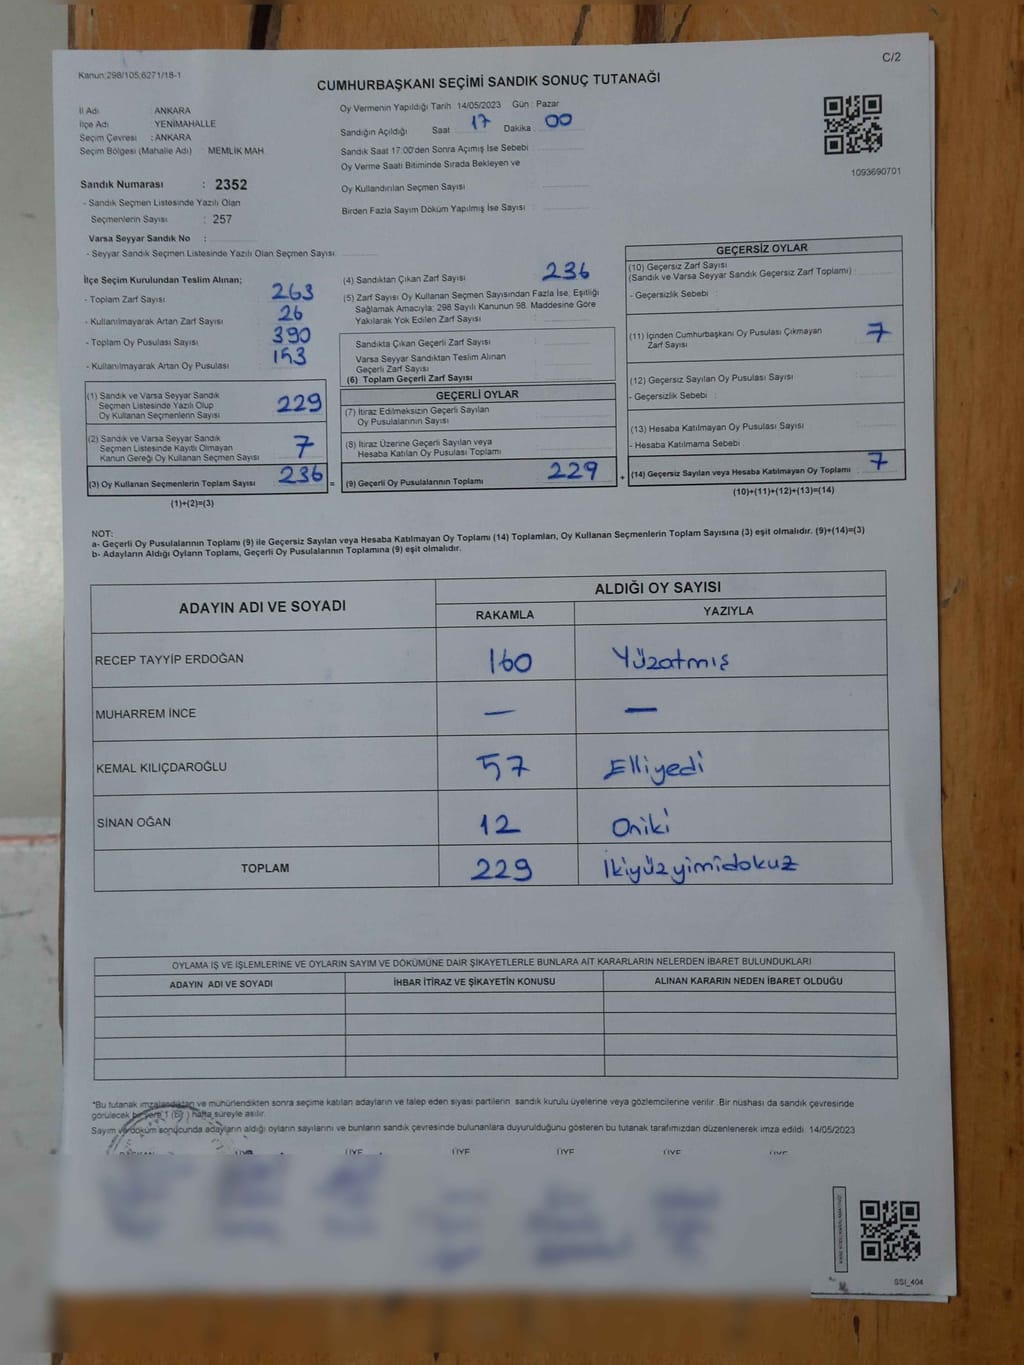 C/2
Kanun:298/105;6271/18-1
CUMHURBAŞKANI SEÇİMİ SANDIK SONUÇ TUTANAĞI
İl Adı ANKARA
İlçe Adı YENİMAHALLE
Seçim Çevresi : ANKARA
Seçim Bölgesi (Mahalle Adı) : MEMLİK MAH.
Oy Vermenin Yapıldığı Tarih 14/05/2023 Gün : Pazar
Sandığın Açıldığı Saat 17 Dakika 00
Sandık Saat 17:00'den Sonra Açımış İse Sebebi :
Oy Verme Saati Bitiminde Sırada Bekleyen ve
Oy Kullandırılan Seçmen Sayısı
Birden Fazla Sayım Döküm Yapılmış İse Sayısı :
1093690701
Sandık Numarası : 2352
- Sandık Seçmen Listesinde Yazılı Olan
Seçmenlerin Sayısı : 257
Varsa Seyyar Sandık No :
- Seyyar Sandık Seçmen Listesinde Yazılı Olan Seçmen Sayısı:
İlçe Seçim Kurulundan Teslim Alınan;
- Toplam Zarf Sayısı : 263
- Kullanılmayarak Artan Zarf Sayısı : 26
- Toplam Oy Pusulası Sayısı : 390
- Kullanılmayarak Artan Oy Pusulası :
(1) Sandık ve Varsa Seyyar Sandık
Seçmen Listesinde Yazılı Olup
Oy Kullanan Seçmenlerin Sayısı 229
(2) Sandık ve Varsa Seyyar Sandık
Seçmen Listesinde Kayıtlı Olmayan
Kanun Gereği Oy Kullanan Seçmen Sayısı 7
(3) Oy Kullanan Seçmenlerin Toplam Sayısı 236 =
(1)+(2)=(3)
(4) Sandıktan Çıkan Zarf Sayısı 236
(5) Zarf Sayısı Oy Kullanan Seçmen Sayısından Fazla İse, Eşitliği
Sağlamak Amacıyla; 298 Sayılı Kanunun 98. Maddesine Göre
Yakılarak Yok Edilen Zarf Sayısı
Sandıkta Çıkan Geçerli Zarf Sayısı
Varsa Seyyar Sandıktan Teslim Alınan
Geçerli Zarf Sayısı
(6) Toplam Geçerli Zarf Sayısı
GEÇERLİ OYLAR
(7) İtiraz Edilmeksizin Geçerli Sayılan
Oy Pusulalarının Sayısı
(8) İtiraz Üzerine Geçerli Sayılan veya
Hesaba Katılan Oy Pusulası Toplamı
(9) Geçerli Oy Pusulalarının Toplamı 229 +
GEÇERSİZ OYLAR
(10) Geçersiz Zarf Sayısı
(Sandık ve Varsa Seyyar Sandık Geçersiz Zarf Toplamı) :
- Geçersizlik Sebebi :
(11) İçinden Cumhurbaşkanı Oy Pusulası Çıkmayan 7
Zarf Sayısı
(12) Geçersiz Sayılan Oy Pusulası Sayısı
- Geçersizlik Sebebi :
(13) Hesaba Katılmayan Oy Pusulası Sayısı
- Hesaba Katılmama Sebebi :
(14) Geçersiz Sayılan veya Hesaba Katılmayan Oy Toplamı 7
(10)+(11)+(12)+(13)=(14)
NOT:
a- Geçerli Oy Pusulalarının Toplamı (9) ile Geçersiz Sayılan veya Hesaba Katılmayan Oy Toplamı (14) Toplamları, Oy Kullanan Seçmenlerin Toplam Sayısına (3) eşit olmalıdır. (9)+(14)=(3)
b- Adayların Aldığı Oyların Toplamı, Geçerli Oy Pusulalarının Toplamına (9) eşit olmalıdır.
ADAYIN ADI VE SOYADI
ALDIĞI OY SAYISI
RAKAMLA YAZIYLA
RECEP TAYYİP ERDOĞAN 160 Yüzatmış
MUHARREM İNCE — —
KEMAL KILIÇDAROĞLU 57 Elliyedi
SİNAN OĞAN 12 Oniki
TOPLAM 229 İkiyüzyimidokuz
OYLAMA İŞ VE İŞLEMLERİNE VE OYLARIN SAYIM VE DÖKÜMÜNE DAİR ŞİKAYETLERLE BUNLARA AİT KARARLARIN NELERDEN İBARET BULUNDUKLARI
ADAYIN ADI VE SOYADI İHBAR İTİRAZ VE ŞİKAYETİN KONUSU ALINAN KARARIN NEDEN İBARET OLDUĞU
*Bu tutanak imzalandıktan ve mühürlendikten sonra seçime katılan adayların ve talep eden siyasi partilerin sandık kurulu üyelerine veya gözlemcilerine verilir. Bir nüshası da sandık çevresinde
görülecek bir yere 1 (Bir ) hafta süreyle asılır.
Sayım ve döküm sonucunda adayların aldığı oyların sayılarını ve bunların sandık çevresinde bulunanlara duyurulduğunu gösteren bu tutanak tarafımızdan düzenlenerek imza edildi. 14/05/2023
BAŞKAN ÜYE ÜYE ÜYE ÜYE ÜYE ÜYE
SSI_404